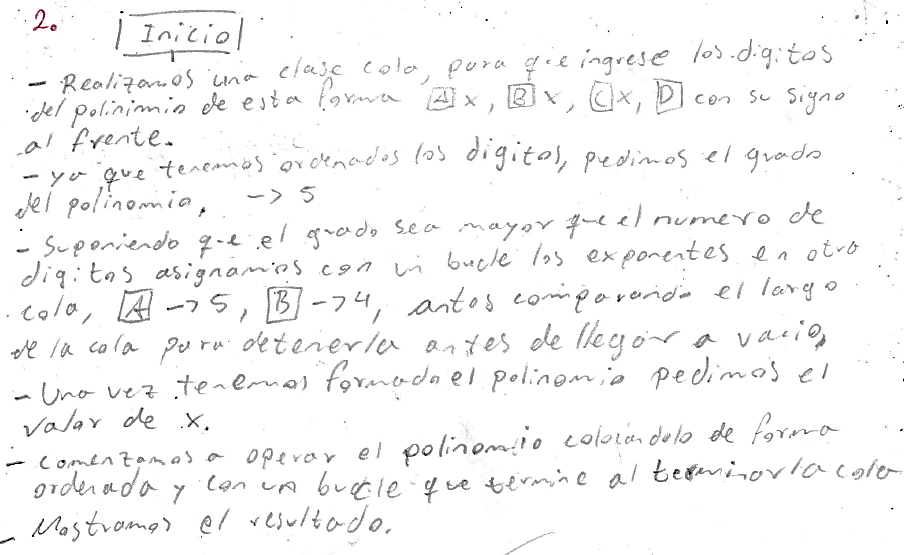 2.
Inicio
- Realizamos una clase cola, para que ingrese los digitos
del polinimio de esta forma [A]x, [B]x, [C]x, [D] con su signo
al frente.
- ya que tenemos ordenados los digitos, pedimos el grado
del polinomio. -> 5
- Suponiendo que el grado sea mayor que el numero de
digitos asignamos con un bucle los exponentes en otra
cola, [A] -> 5, [B] -> 4, antes comparando el largo
de la cola para detenerla antes de llegar a vacio,
- Una vez tenemos formado el polinomio pedimos el
valor de x.
- comenzamos a operar el polinomio colocandolo de forma
ordenada y con un bucle que termine al terminar la cola
- Mostramos el resultado.